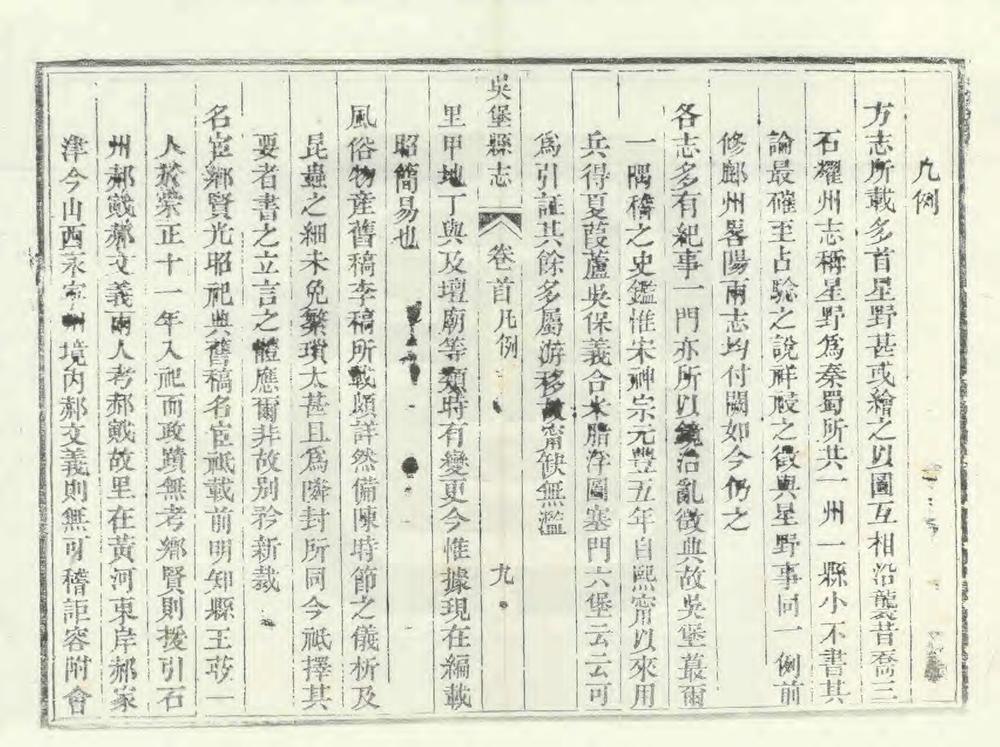 凡例
方志所載多首星野甚或繪之以圖互相沿襲昔喬三
石耀州志稱星野爲秦蜀所共一州一縣小不書其
論最確至占驗之說祥祲之徵與星野事同一例前
修鄜州畧陽兩志均付闕如今仍之
各志多有紀事一門亦所以鏡治亂徵典故吳堡蕞爾
一隅稽之史鑑惟宋神宗元豐五年自熙甯以來用
兵得夏葭蘆吳保義合米脂浮圖塞門六堡云云可
爲引証其餘多屬游移故甯缺無濫
吳堡縣志 卷首凡例 九
里甲地丁與及壇廟等類時有變更今惟據現在編載
昭簡易也
風俗物產舊稿李稿所載頗詳然備陳時節之儀析及
昆蟲之細未免繁瑣太甚且爲隣封所同今祇擇其
要者書之立言之體應爾非故别矜新裁
名宦鄉賢光昭祀典舊稿名宦祇載前明知縣王 一
人於崇正十一年入祀而政蹟無考鄉賢則援引石
州郝戭郝文義兩人考郝戭故里在黃河東岸郝家
津今山西永甯州境內郝文義則無可稽詎容附會